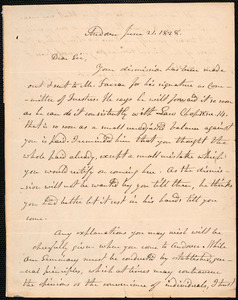 Andover June 21. 1828.
Dear Sir,
Your dismission has been made
out & sent to Mr. Farrar for his signature as Com-
mittee of Trustees. He says he will forward it so soon
as he can do it consistently with Law Chapter 14.
that is so soon as a small unadjusted balance against
you is paid. I reminded him that you thought the
whole paid already, except a small mistake which
you would rectify on coming here. As the dismis-
sion will not be wanted by you till then, he thinks
you had better let it rest in his hands till you
come.
Any explanations you may wish will be
cheerfully given when you come to Andover. While
our Seminary must be conducted by established, gen-
eral principles, which at times may contravene
the opinions or the convenience of individuals, I trust